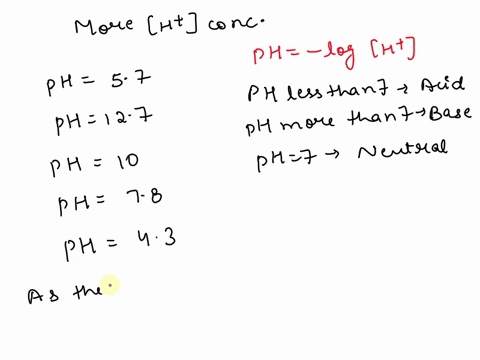 More [H+] conc.
pH = 5.7
pH = 12.7
pH = 10
pH = 7.8
pH = 4.3
As the
pH = -log [H+]
PH less than 7 → Acid
pH more than 7 → Base
pH = 7 → Neutral